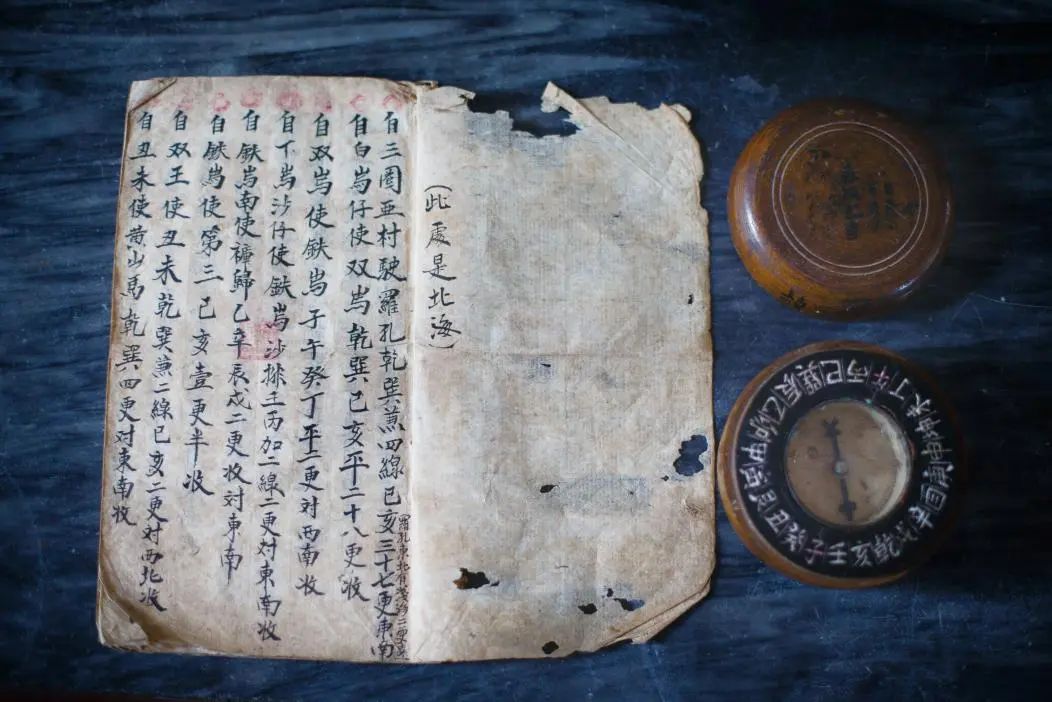 (此處是北海)
自三圈亚村駛羅孔乾巽兼四線已亥三十七更東南
羅孔東北有淺為二更
自白峙仔使双峙乾巽已亥平二十八更收
自双峙使鉄峙子午癸丁平二更对西南收
自下峙沙仔使鉄峙沙排壬丙加二線二更对東南收
自鉄峙南使裤歸乙辛辰戌二更收对東南
自鉄峙使第三已亥壹更半收
自双王使丑未乾巽兼二線已亥二更对西北收
自丑未使黄山馬乾巽四更对東南收
子癸丑艮寅甲卯乙辰巽巳丙午丁未坤申庚酉辛戌乾亥壬